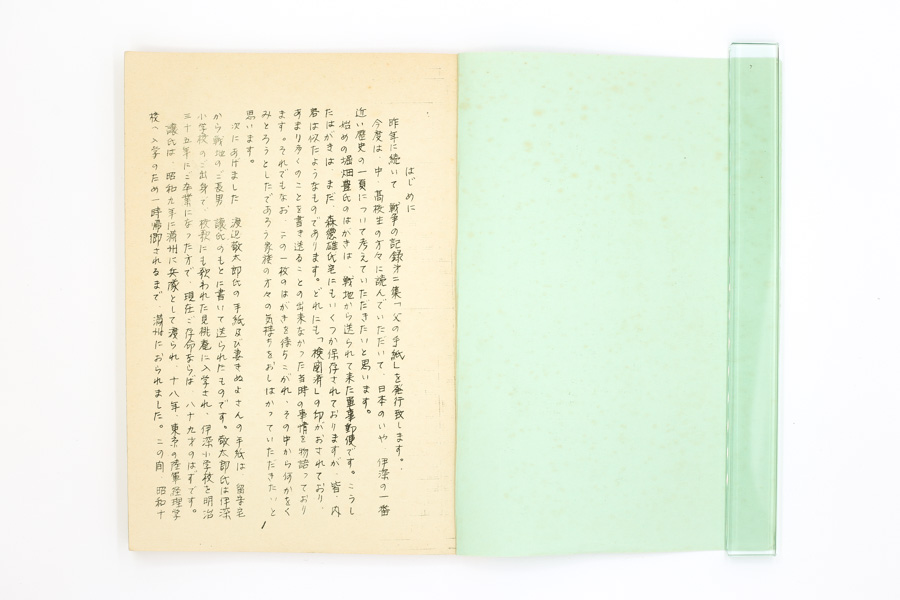 はじめに
昨年に続いて 戦争の記録第二集「父の手紙」を発行致します。
今度は、中、高校生の方々に読んでいただいて、日本のいや 伊深の一番
近い歴史の一頁について考えていただきたいと思います。
始めの堀畑豊氏のはがきは、戦地から送られて来た軍事郵便です。こうし
たはがきは、まだ、森 雄氏宅にもいくつか保存されておりますが、皆、内
容は似たようなものであります。どれにも「検閲済」の印がおされており、
あまり多くのことを書き送ることの出来なかった当時の事情を物語っており
ます。それでもなお、この一枚のはがきを待ちこがれ、その中から何かをく
みとろうとしたであろう家族の方々の気持ちをおしはかっていただきたいと
思います。
次にあげました 渡辺敬太郎氏の手紙及び妻きぬよさんの手紙は 留守宅
から戦地のご長男 譲氏のもとに書いて送られたものです。敬太郎氏は伊深
小学校のご出身で、校歌にも歌われた見桃庵に入学され、伊深小学校を明治
三十五年にご卒業になった方で、現在ご存命ならば 八十九才のはずです。
譲氏は、昭和九年に満州に兵隊として渡られ、十八年、東京の陸軍経理学
校へ入学のため一時帰郷されるまで、満州におられました。この間 昭和十
1